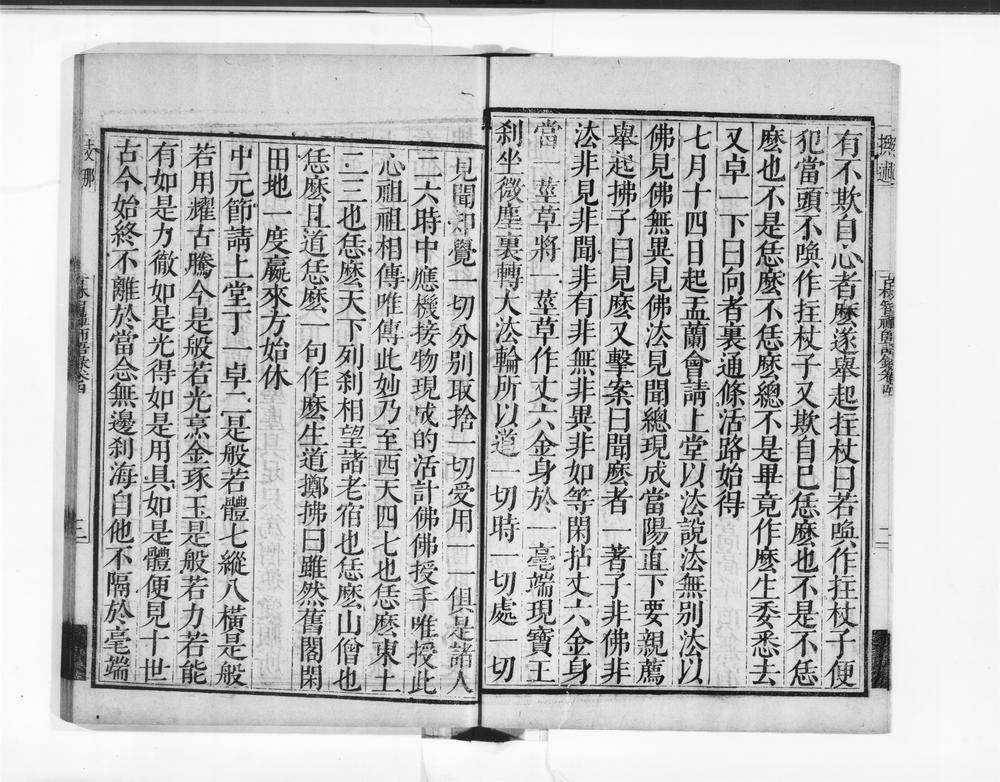 有不欺自心者麽遂舉起拄杖曰若喚作拄杖子便
犯當頭不喚作拄杖子又欺自己恁麽也不是不恁
麽也不是恁麽不恁麽總不是畢竟作麽生委悉去
又卓一下曰向者裏通條活路始得
七月十四日起盂蘭會請上堂以法說法無別法以
佛見佛無異見佛法見聞總現成當陽直下要親薦
舉起拂子曰見麽又擊案曰聞麽者一著子非佛非
法非見非聞非有非無非異非如等閑拈丈六金身
當一莖草將一莖草作丈六金身於一毫端現寶王
剎坐微塵裏轉大法輪所以道一切時一切處一切
見聞知覺一切分別取捨一切受用一一俱是諸人
二六時中應機接物現成的活計佛佛授手唯授此
心祖祖相傳唯傳此妙乃至西天四七也恁麽東土
二三也恁麽天下列剎相望諸老宿也恁麽山僧也
恁麽且道恁麽一句作麽生道擲拂曰雖然舊閣閑
田地一度贏來方始休
中元節請上堂丁一卓二是般若體七縱八橫是般
若用耀古騰今是般若光烹金琢玉是般若力若能
有如是力徹如是光得如是用具如是體便見十世
古今始終不離於當念無邊剎海自他不隔於毫端